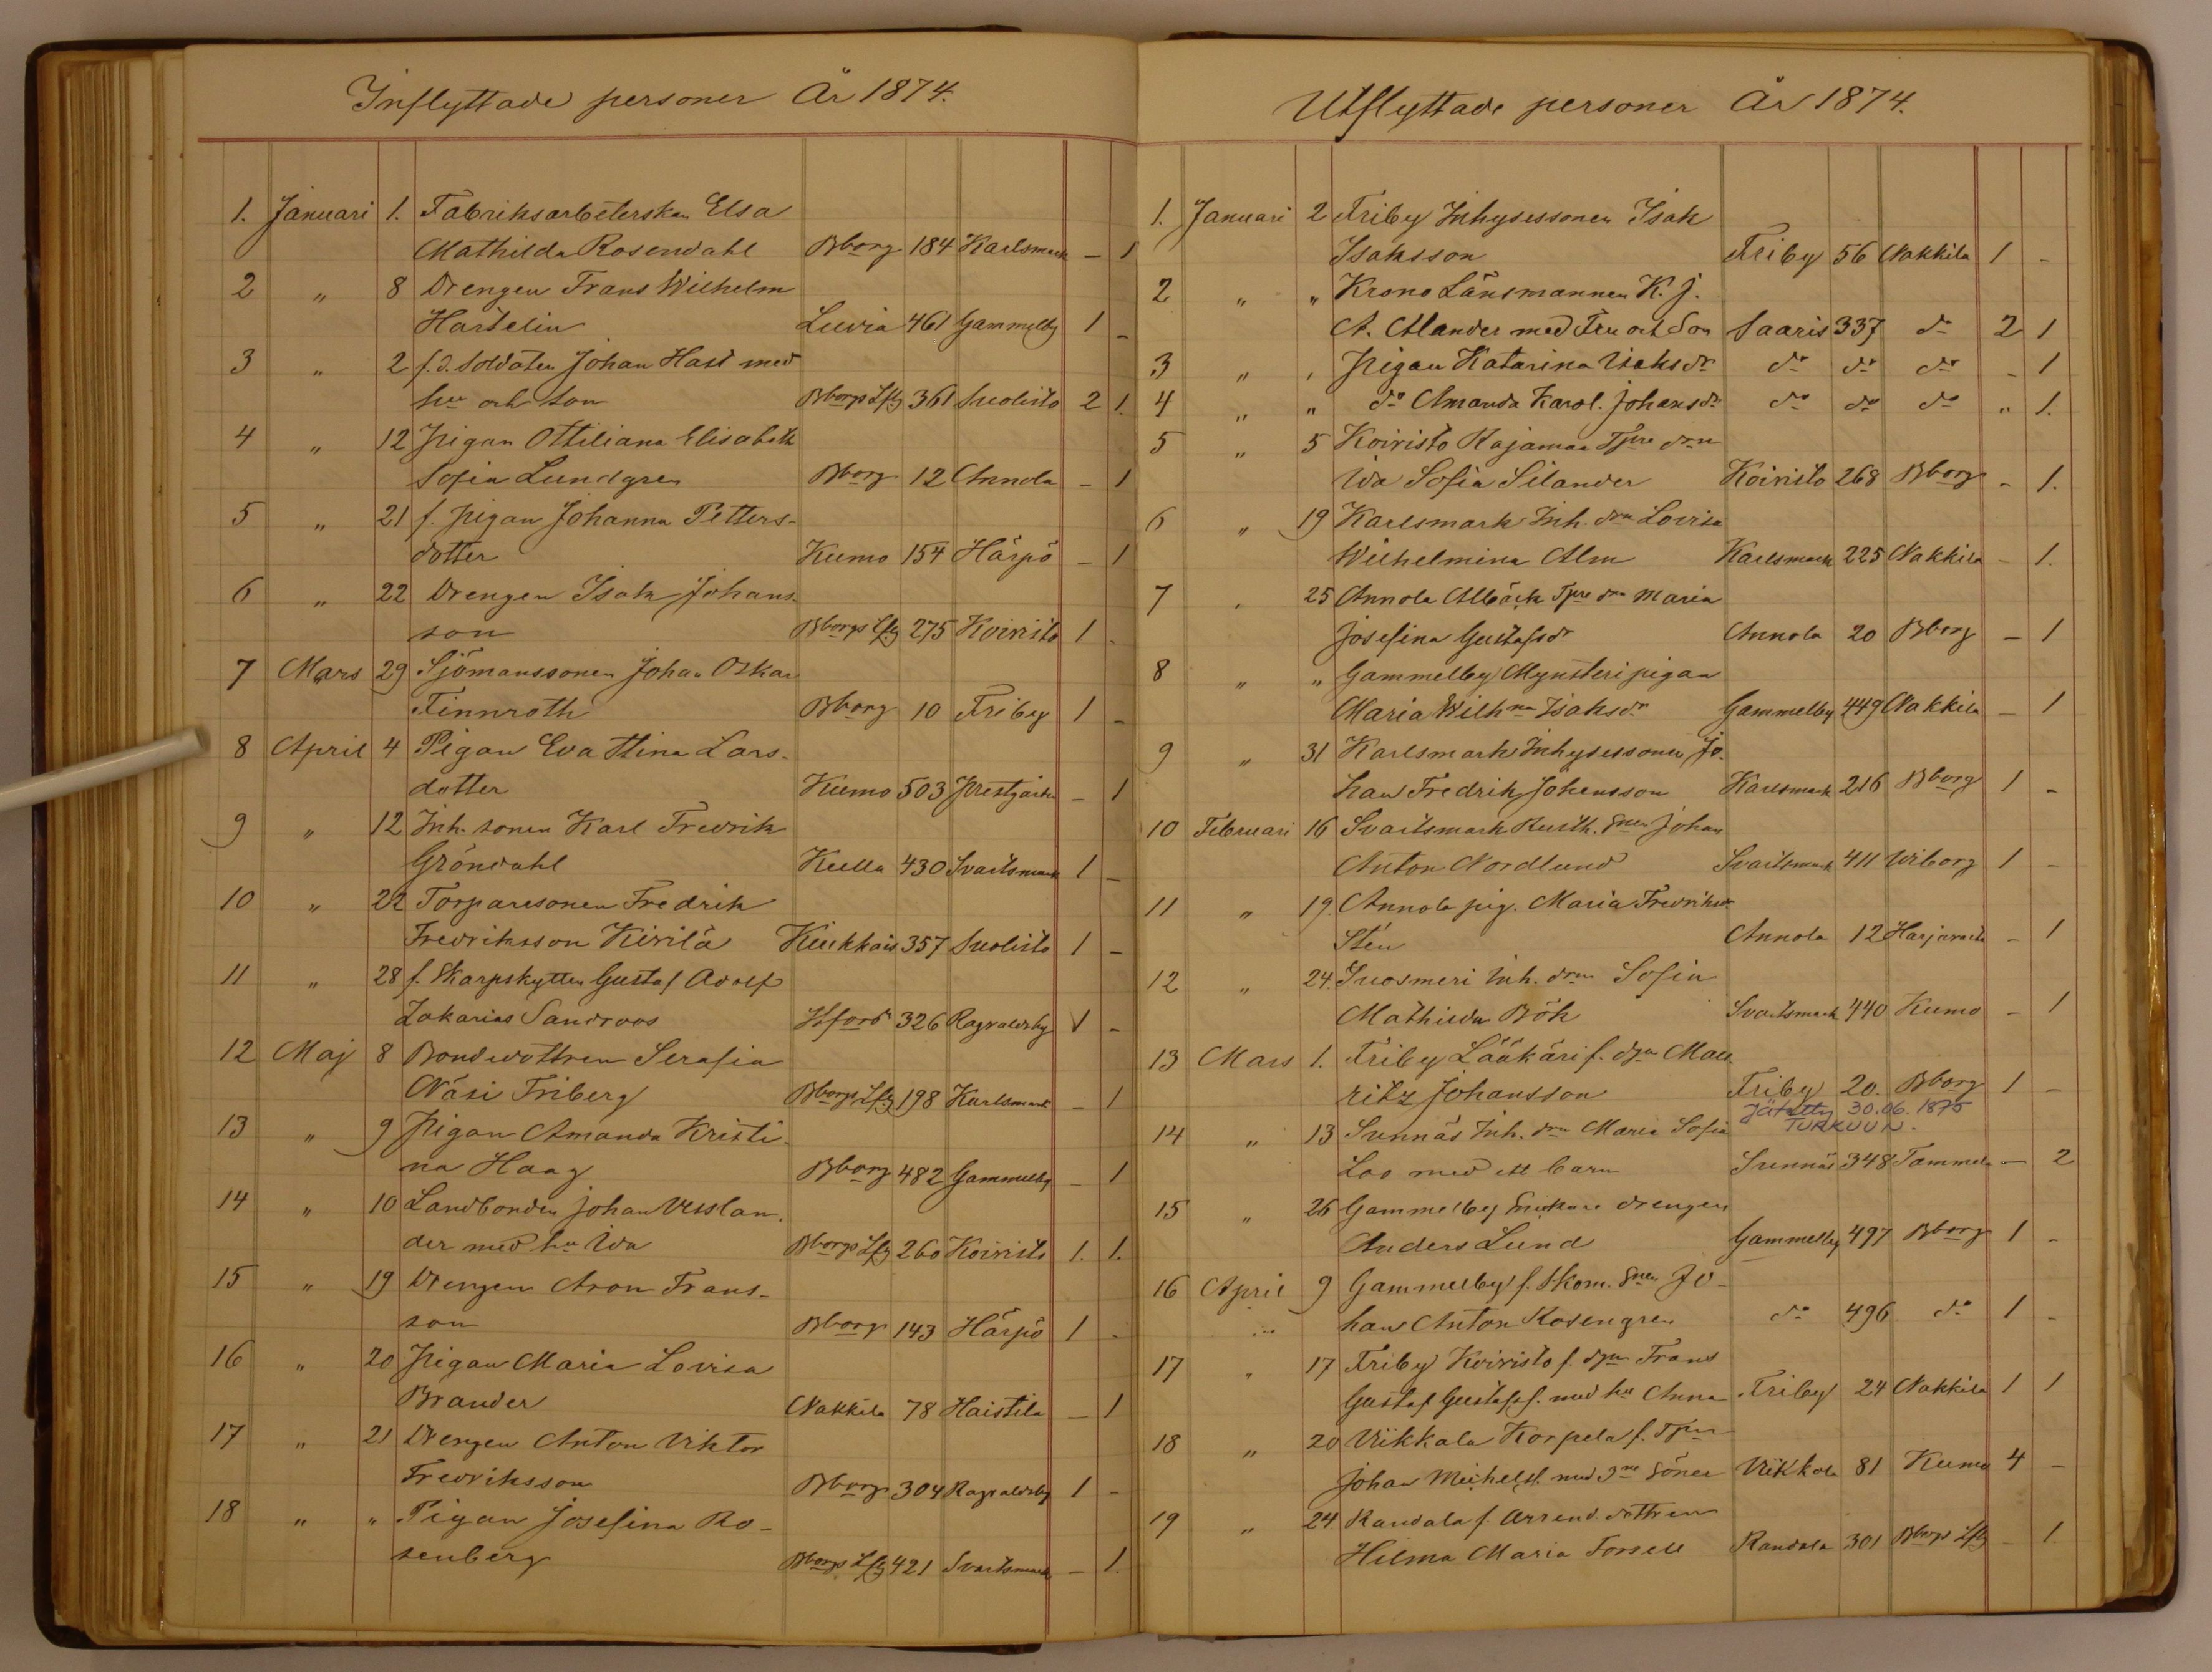 Inflyttade personer År 1874.
1. Januari 1. Fabriksarbeterskan Elsa
Mathilda Rosendahl Bborg 184 Karlsmark — 1
2 „ 8 Drengen Frans Wilhelm
Hartelin Luvia 461 Gammelby 1 —
3 „ 2 f.d. soldaten Johan Hast med
hu och son Bborgs Lfg 361 Suolisto 2 1.
4 „ 12 Pigan Ottiliana Elisabeth
Sofia Lundgren Bborg 12 Annola — 1
5 „ 21 f. Pigan Johanna Petters-
dotter Kumo 154 Härpö — 1
6 „ 22 Drengen Isak Johans-
son Bborgs Lfg 275 Koivisto 1 .
7 Mars 29 Sjömanssonen Johan Oskar
Finnroth Bborg 10 Friby 1 —
8 April 4 Pigan Eva Stina Lars-
dotter Kumo 503 — 1
9 „ 12 Inh. sonen Karl Fredrik
Gröndahl Kulla 430 Svartsmark 1 —
10 „ 22 Torparesonen Fredrik
Fredriksson Kivilä Kiukkais 357 Suolisto 1 —
11 „ 28 f. Skarpskytten Gustaf Adolf
Zakarias Sandroos Hfors 326 Ragvaldsby 1 —
12 Maj 8 Bondedottren Serafia
Näsi Friberg Bborgs Lfg 198 Karlsmark — 1
13 „ 9 Pigan Amanda Kristi-
na Haag Bborg 482 Gammelby — 1
14 „ 10 Landbonden Johan Wesslan-
der med hu Ida Bborgs Lfg 260 Koivisto 1. 1.
15 „ 19 Drengen Aron Frans-
son Bborg 143 Härpö 1 -
16 „ 20 Pigan Maria Lovisa
Brander Nakkila 78 Haistila — 1
17 „ 21 Drengen Anton Viktor
Fredriksson Bborg 304 Ragvaldsby 1 -
18 „ „ Pigan Josefina Ro-
senberg Bborgs Lfg 421 Svartsmark — 1.
Utflyttade personer År 1874.
1. Januari 2 Friby Inhysessonen Isak
Isaksson Friby 56 Nakkila 1 -
2 „ „ Krono Länsmannen K. J.
A. Alander med Fru och Son Saaris 337 do 2 1
3 „ , Pigan Katarina Isaksdr do do do - 1
4 „ „ do Amanda Karol. Johansdr do do do „ 1.
5 „ 5 Koivisto Rajamaa Tpre drn
Ida Sofia Silander Koivisto 268 Bborg - 1.
6 „ 19 Karlsmark Inh. drn Lovisa
Wilhelmina Alm Karlsmark 225 Nakkila — 1.
7 „ 25 Annola Albäck Tpre drn Maria
Josefina Gustafsdr Annola 20 Bborg — 1
8 „ „ Gammelby Mynsteri pigan
Maria Wilhna Isaksdr Gammelby 449 Nakkila — 1
9 „ 31 Karlsmark Inhysessonen Jo-
han Fredrik Johansson Karlsmark 216 Bborg 1 -
10 Februari 16 Svartsmark Rusth. snen Johan
Anton Nordlund Svartsmark 411 Wiborg 1 -
11 „ 19. Annola pig. Maria Fredriksdr
Stén Annola 12 Harjavalta — 1
12 „ 24. Suosmeri Inh. drn Sofia
Mathilda Böh Svartsmark 440 Kumo — 1
13 Mars 1. Friby Lääkäri f. Mau-
ritz Johansson Friby 20. Bborg 1 —
30.06. 1875
TURKUUN.
14 „ 13 Sunnäs Inh. drn Maria Sofia
Loo med ett barn Sunnäs 348 Tammela — 2
15 „ 26 Gammelby drengen
Anders Lund Gammelby 497 Bborg 1 -
16 April 9 Gammelby f. Skom. snen Jo-
han Anton Rosengren do 496 do 1 -
17 „ 17 Friby Koivisto f. Frans
Gustaf Gustafss. med hu Anna Friby 24 Nakkila 1 1
18 „ 20 Viikkala Korpela f. Tpn
Johan Michelss. med 3ne söner Viikkala 81 Kumo 4 —
19 „ 24 Randala f. Arrend. dottren
Hilma Maria Forsell Randala 301 Bborgs Lfg — 1.